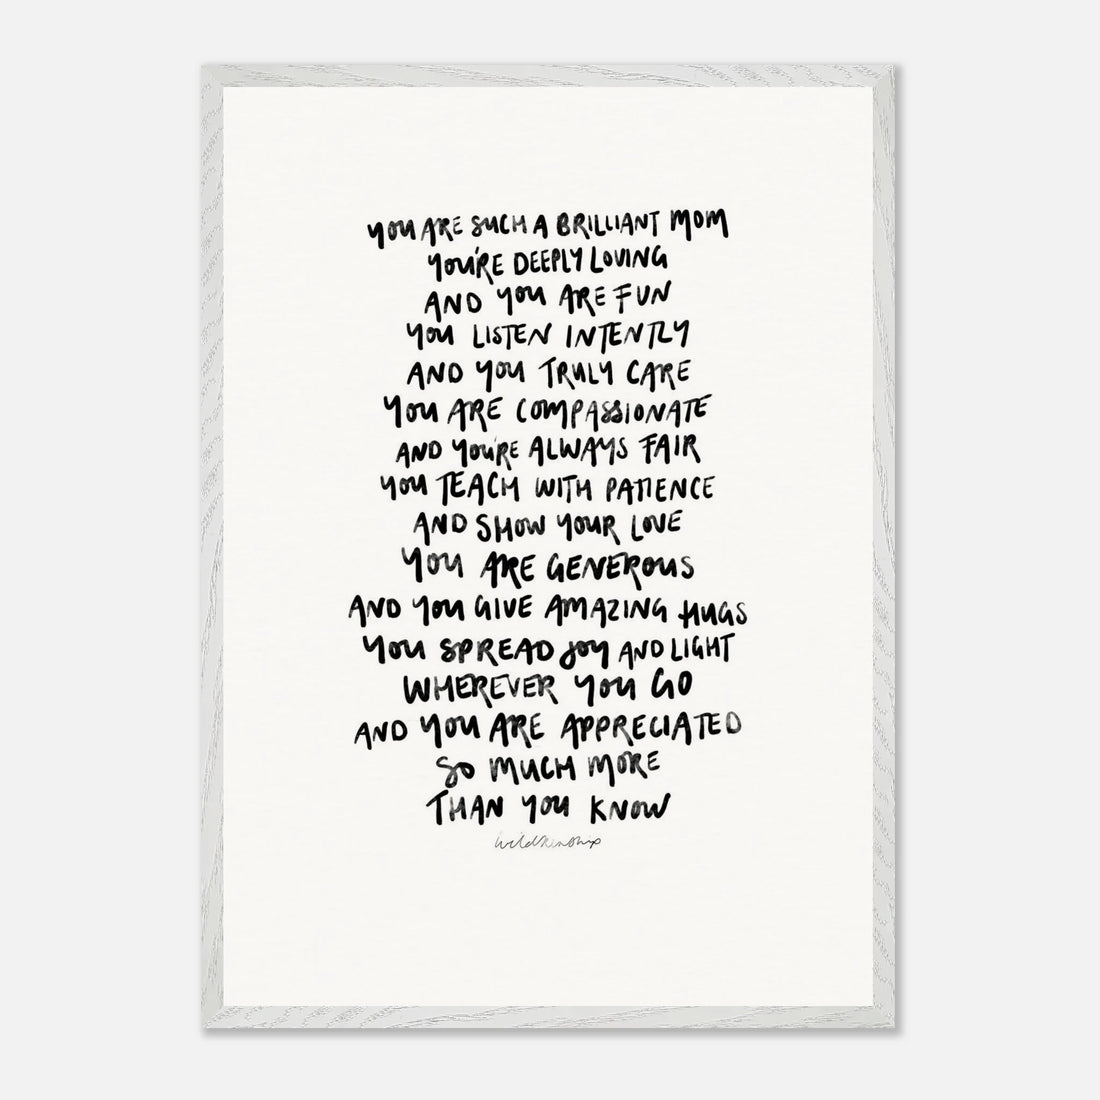 YOU ARE SUCH A BRILLIANT MOM
YOU'RE DEEPLY LOVING
AND YOU ARE FUN
YOU LISTEN INTENTLY
AND YOU TRULY CARE
YOU ARE COMPASSIONATE
AND YOU'RE ALWAYS FAIR
YOU TEACH WITH PATIENCE
AND SHOW YOUR LOVE
YOU ARE GENEROUS
AND YOU GIVE AMAZING HUGS
YOU SPREAD JOY AND LIGHT
WHEREVER YOU GO
AND YOU ARE APPRECIATED
SO MUCH MORE
THAN YOU KNOW
wildkinship